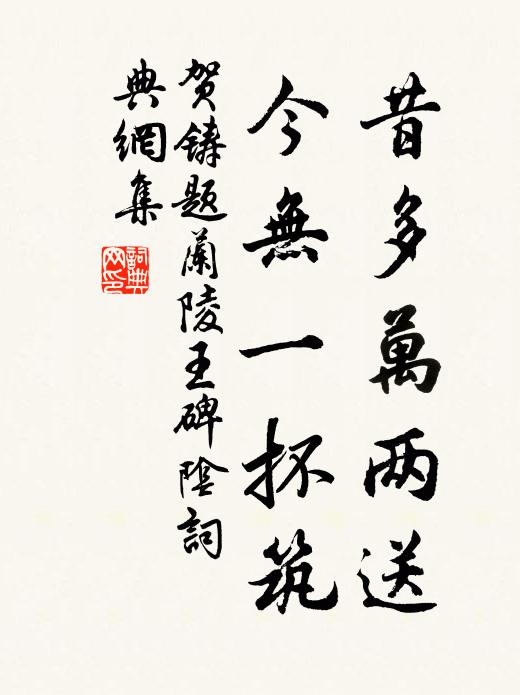 昔多萬两送
今無一抔筑
贺鑄题蘭陵王碑陰詞
典網集
詞典网印